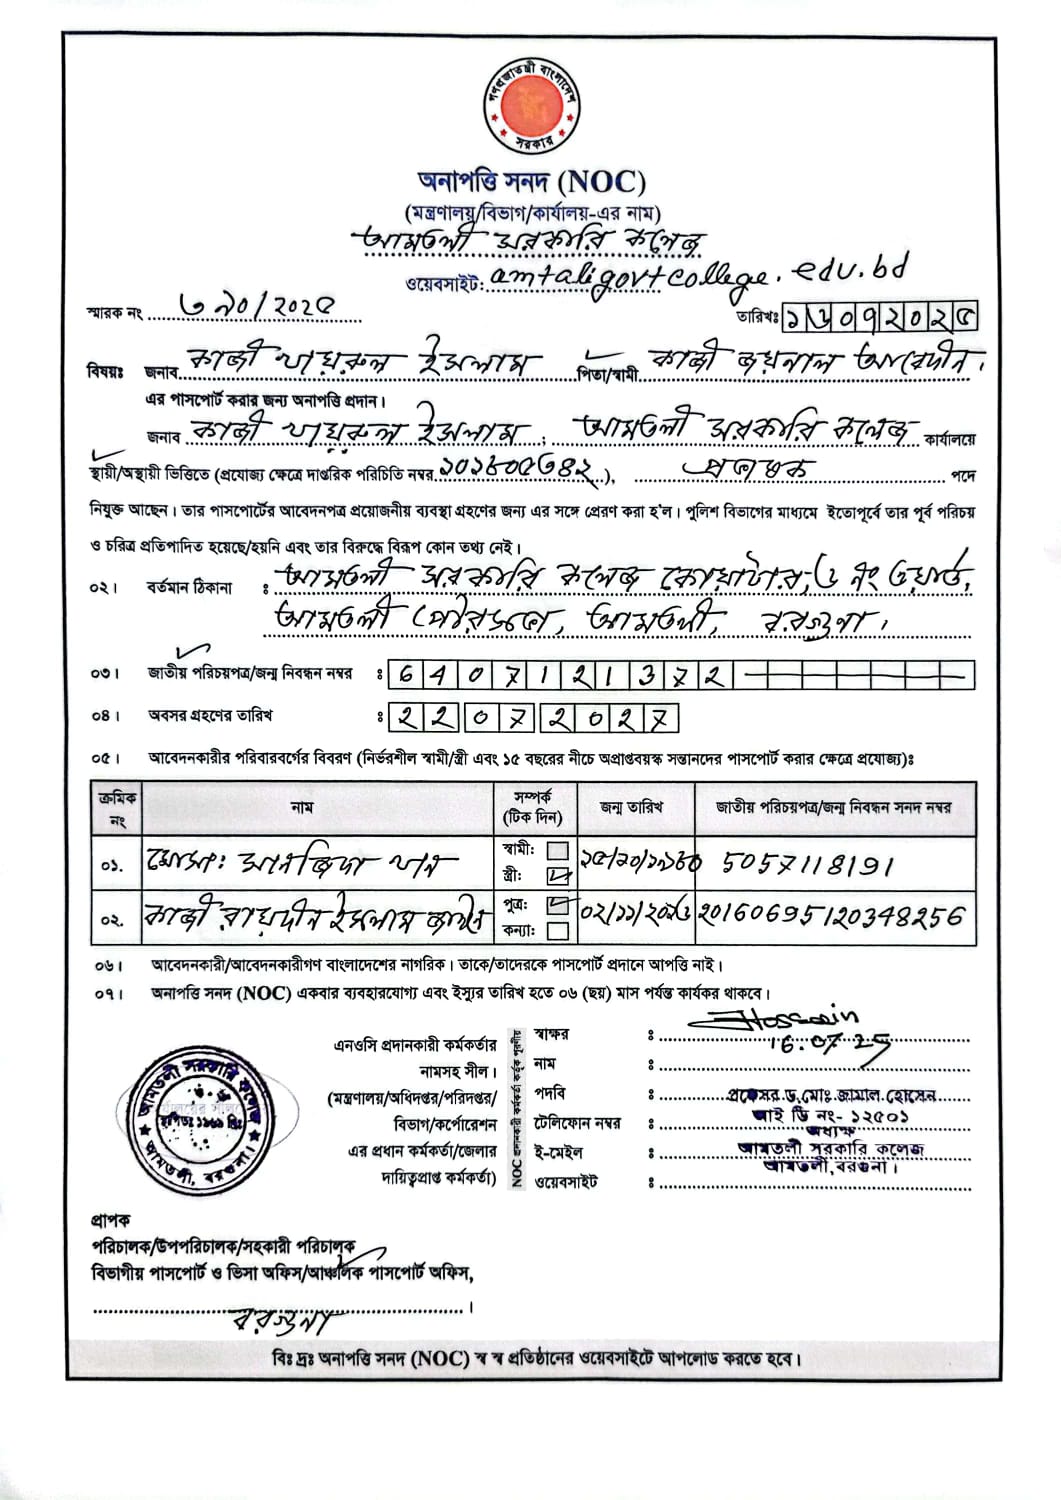 গণপ্রজাতন্ত্রী বাংলাদেশ
সরকার
অনাপত্তি সনদ (NOC)
(মন্ত্রণালয়/বিভাগ/কার্যালয়-এর নাম)
আমতলী সরকারি কলেজ
ওয়েবসাইট: amtaligovtcollege.edu.bd
স্মারক নং ৩৯০/২০২৫
তারিখঃ ১৬০৭২০২৫
বিষয়ঃ জনাব কাজী খায়রুল ইসলাম পিতা/স্বামী কাজী জয়নাল আবেদীন।
এর পাসপোর্ট করার জন্য অনাপত্তি প্রদান।
জনাব কাজী খায়রুল ইসলাম, আমতলী সরকারি কলেজ কার্যালয়ে
স্থায়ী/অস্থায়ী ভিত্তিতে (প্রযোজ্য ক্ষেত্রে দাপ্তরিক পরিচিতি নম্বর), প্রভাষক পদে
নিযুক্ত আছেন। তার পাসপোর্টের আবেদনপত্র প্রয়োজনীয় ব্যবস্থা গ্রহণের জন্য এর সঙ্গে প্রেরণ করা হ'ল। পুলিশ বিভাগের মাধ্যমে ইতোপূর্বে তার পূর্ব পরিচয়
ও চরিত্র প্রতিপাদিত হয়েছে/হয়নি এবং তার বিরুদ্ধে বিরূপ কোন তথ্য নেই।
০২। বর্তমান ঠিকানা : আমতলী সরকারি কলেজ কোয়াটার, ৩ নং ওয়ার্ড,
আমতলী পৌরসভা, আমতলী, বরগুনা।
০৩। জাতীয় পরিচয়পত্র/জন্ম নিবন্ধন নম্বর : 6407121372
০৪। অবসর গ্রহণের তারিখ : 22072027
০৫। আবেদনকারীর পরিবারবর্গের বিবরণ (নির্ভরশীল স্বামী/স্ত্রী এবং ১৫ বছরের নীচে অপ্রাপ্তবয়স্ক সন্তানদের পাসপোর্ট করার ক্ষেত্রে প্রযোজ্য)ঃ
ক্রমিক নং নাম সম্পর্ক (টিক দিন) জন্ম তারিখ জাতীয় পরিচয়পত্র/জন্ম নিবন্ধন সনদ নম্বর
০১. মোসাঃ সানজিদা খান স্বামী: স্ত্রী: 5057118191
০২. কাজী রায়দীন ইসলাম পুত্র: কন্যা: ০২/১১/২০১৬ 20160695120348256
০৬। আবেদনকারী/আবেদনকারীগণ বাংলাদেশের নাগরিক। তাকে/তাদেরকে পাসপোর্ট প্রদানে আপত্তি নাই।
০৭। অনাপত্তি সনদ (NOC) একবার ব্যবহারযোগ্য এবং ইস্যুর তারিখ হতে ০৬ (ছয়) মাস পর্যন্ত কার্যকর থাকবে।
এনওসি প্রদানকারী কর্মকর্তার
নামসহ সীল।
(মন্ত্রণালয়/অধিদপ্তর/পরিদপ্তর/
বিভাগ/কর্পোরেশন
এর প্রধান কর্মকর্তা/জেলার
দায়িত্বপ্রাপ্ত কর্মকর্তা)
NOC প্রদানকারী কর্মকর্তা কর্তৃক পূরণীয়
স্বাক্ষর : Hossain
16.07.25
নাম :
পদবি : প্রফেসর ড. মোঃ জামাল হোসেন
আই ডি নং- ১২৫০১
টেলিফোন নম্বর : অধ্যক্ষ
ই-মেইল : আমতলী সরকারি কলেজ
আমতলী, বরগুনা।
ওয়েবসাইট :
আমতলী সরকারি কলেজ
স্থাপিতঃ ১৯৬৯ খ্রিঃ
আমতলী, বরগুনা।
প্রাপক
পরিচালক/উপপরিচালক/সহকারী পরিচালক
বিভাগীয় পাসপোর্ট ও ভিসা অফিস/আঞ্চলিক পাসপোর্ট অফিস,
বরগুনা
বিঃ দ্রঃ অনাপত্তি সনদ (NOC) স্ব স্ব প্রতিষ্ঠানের ওয়েবসাইটে আপলোড করতে হবে।